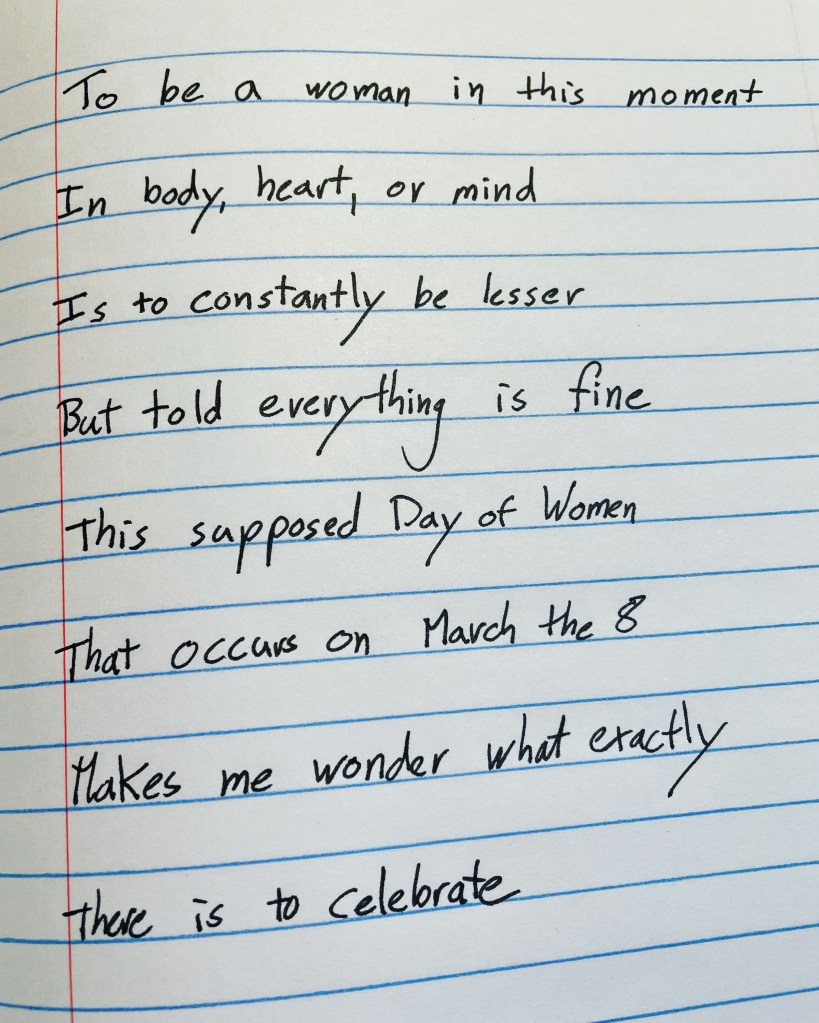 To be a woman in this moment
In body, heart, or mind
Is to constantly be lesser
But told everything is fine
This supposed Day of Women
That occurs on March the 8
Makes me wonder what exactly
there is to celebrate